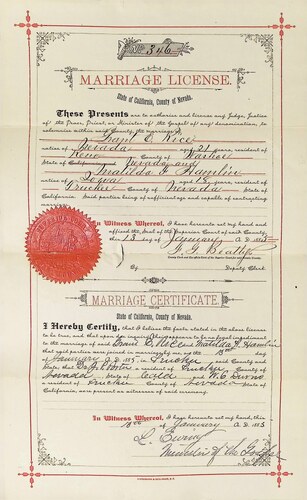 346
MARRIAGE LICENSE.
State of California, County of Nevada.
These Presents are to authorize and license any Judge, Justice
of the Peace, Priest, or Minister of the Gospel of any denomination, to
solemnize within said County, the marriage of
Grant C. Rice
native of Nevada aged 21 years, resident of
Reno County of Washoe
State of Nevada and
Matilda F. Hamlin
native of Iowa aged years, resident of
Truckee County of Nevada State of
California. Said parties being of sufficient age and capable of contracting
marriage.
In Witness Whereof, I have hereunto set my hand and
affixed the Seal of the Superior Court of said County,
this 15 day of January A.D. 1885
Deputy Clerk
MARRIAGE CERTIFICATE.
State of California, County of Nevada.
I Hereby Certify, that I believe the facts stated in the above license
to be true, and that upon due inquiry there appears to be no legal impediment
to the marriage of said Grant C. Rice and Matilda F. Hamlin
that said parties were joined in marriage by me, on the 18th day of
January A.D. 1885, in Truckee said County and
State; that a resident of Truckee County of
Nevada State of and
a resident of Truckee County of Nevada State of
California, were present as witnesses of said ceremony.
In Witness Whereof, I have hereunto set my hand, this
18th day of January A.D. 1885
Minister of the Gospel